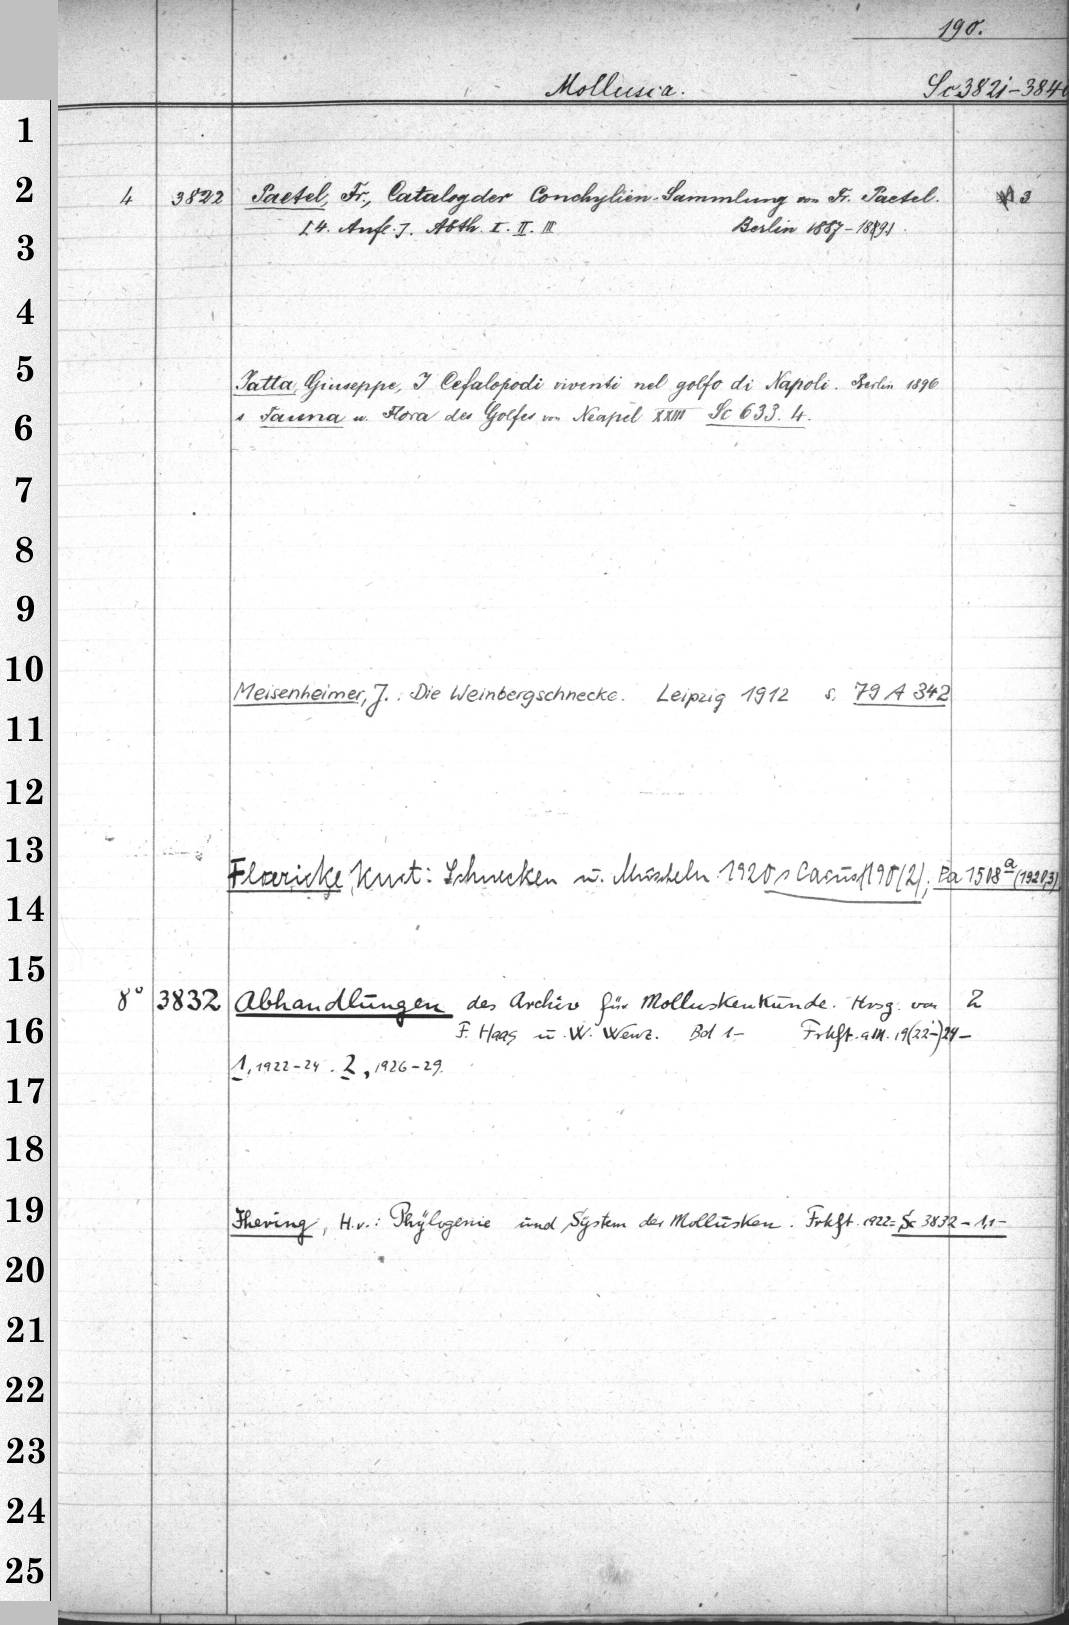 190.
Mollusca. Sc 3821-3840
1
2
4 3822 Paetel, Fr., Catalog der Conchylien-Sammlung von Fr. Paetel. 3
[4. Aufl.]. Abth. I. II. III Berlin 1887-1891.
3
4
5
Jatta, Giuseppe, I Cefalopodi viventi nel golfo di Napoli. Berlin 1896
s Fauna u. Flora des Golfes von Neapel XXIII Sc 633. 4.
6
7
8
9
10
Meisenheimer, J.: Die Weinbergschnecke. Leipzig 1912 s. 79 A 342
11
12
13
Floericke Kurt: Schnecken u. Muscheln 1920 s 190(2); Pa 1508a (1920,3)
14
15
8° 3832 Abhandlungen des Archiv für Molluskenkunde. Hrsg. von 2
16
F. Haag u. W. Wenz. Bd 1- Frkft. a.M. 19(22-)24-
1, 1922-24. 2, 1926-29.
17
18
19
Jhering, H.v.: Phylogenie und System der Mollusken. Frkft. 1922 = Sc 3832-1,1-
20
21
22
23
24
25